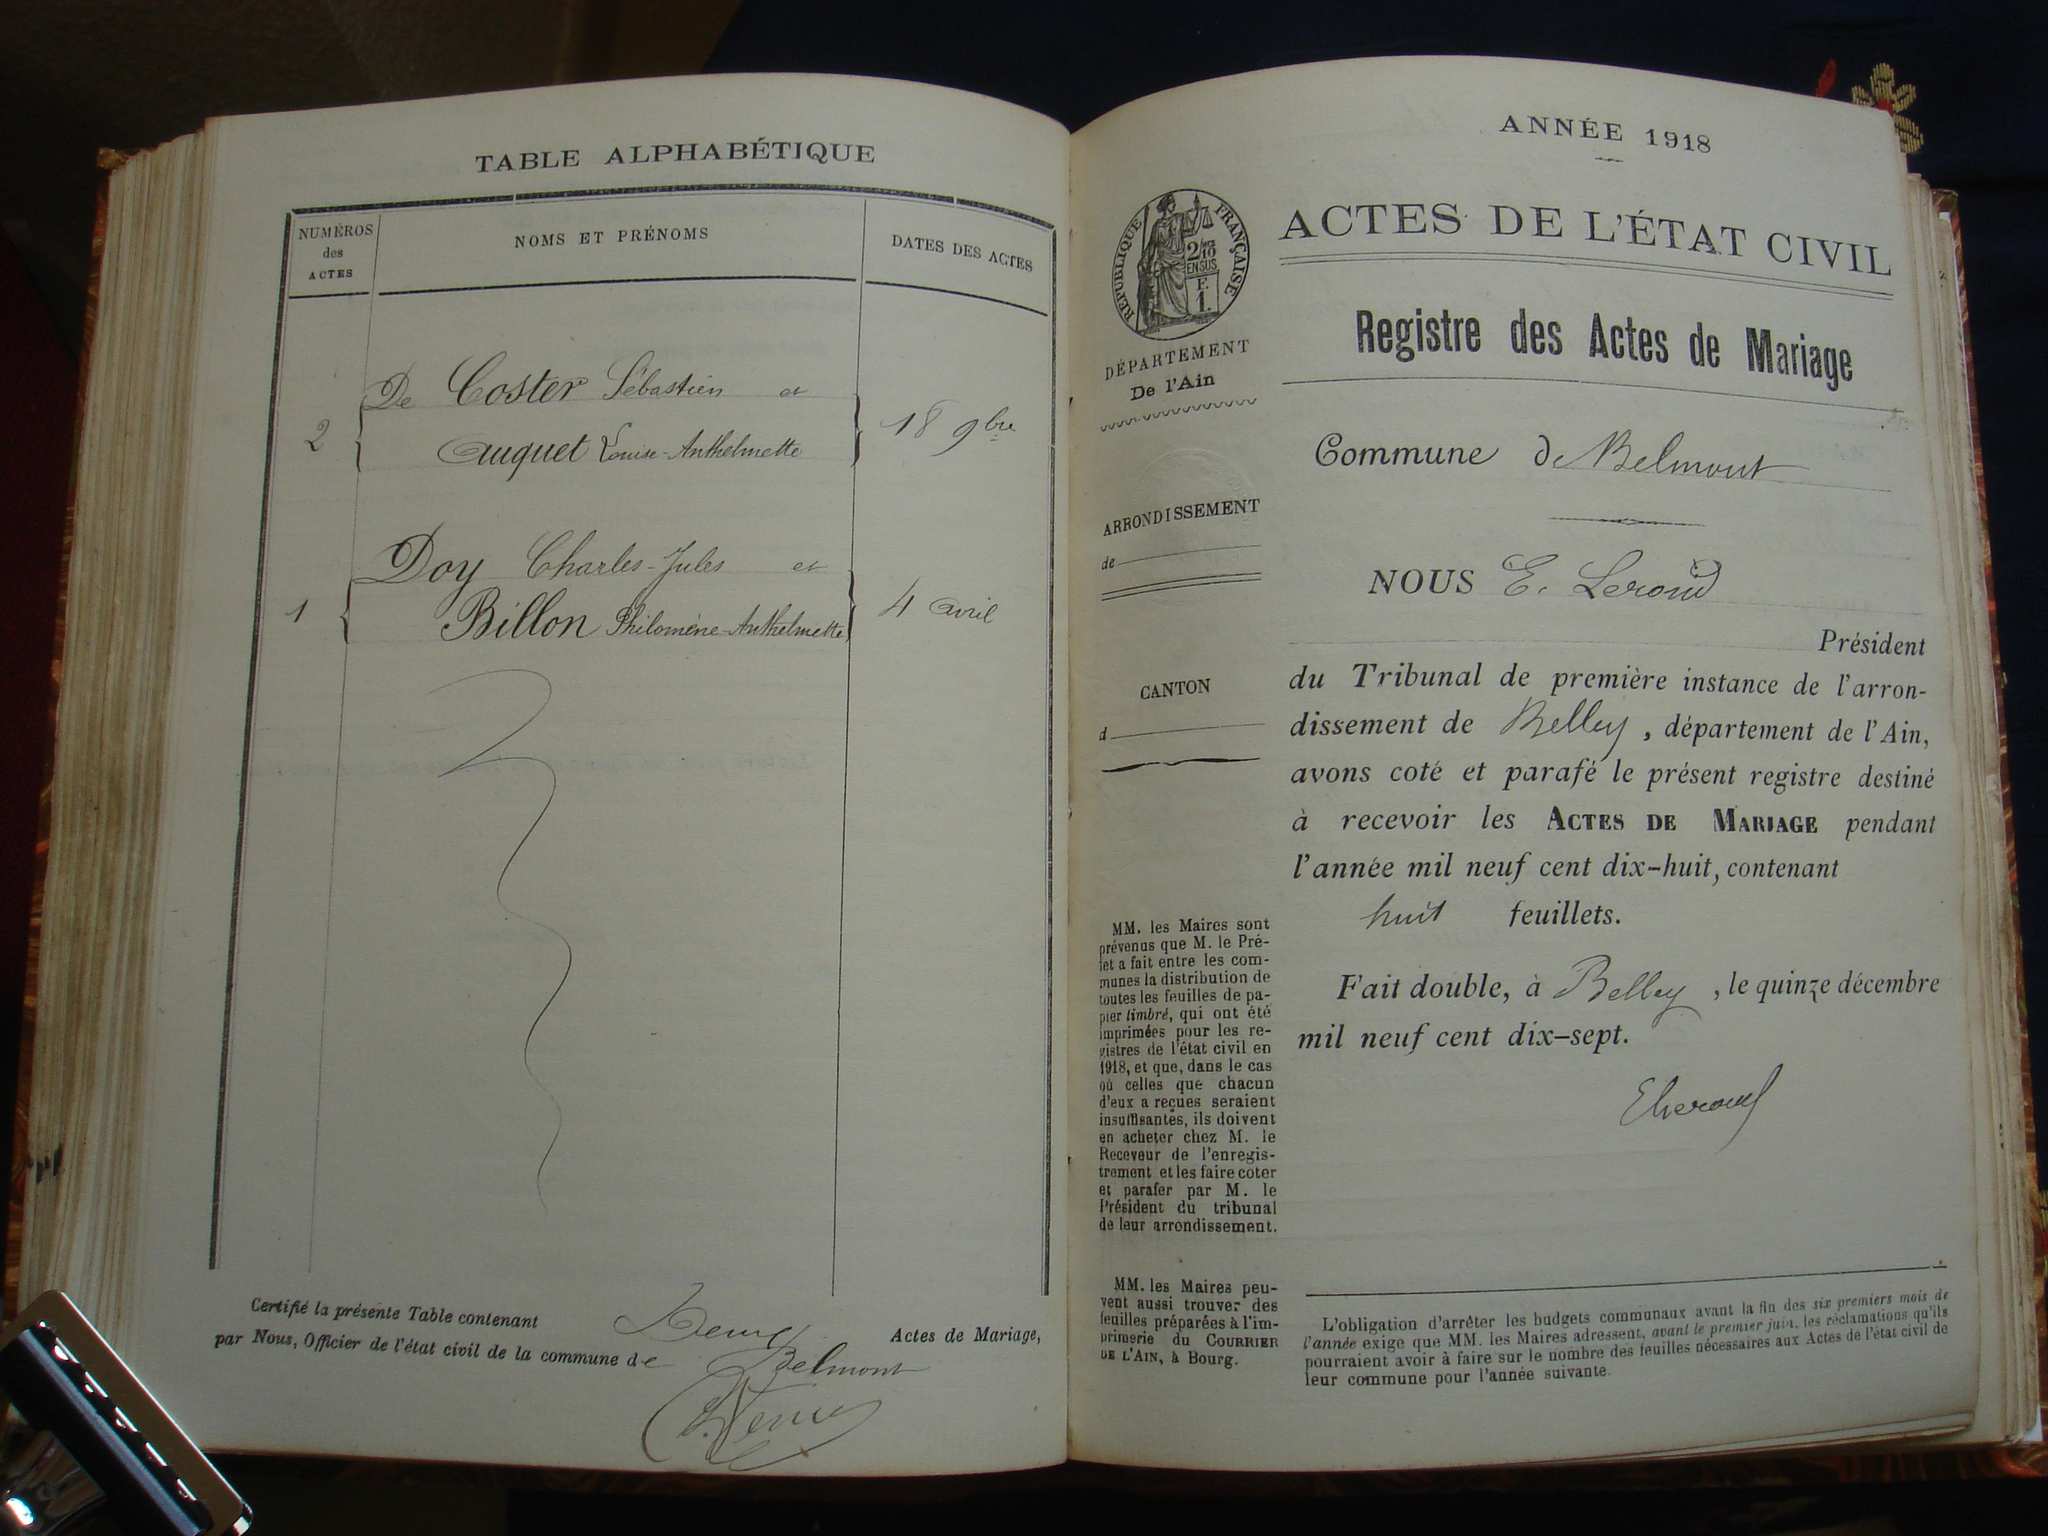 TABLE ALPHABÉTIQUE
NUMÉROS
des
ACTES
NOMS ET PRÉNOMS
DATES DES ACTES
De Coster Sébastien et
2
Cuquet Louise-Anthelmette
18 9bre
Doy Charles-Jules et
1
Billon Philomène-Anthelmette
4 avril
Certifié la présente Table contenant Deux Actes de Mariage,
par Nous, Officier de l'état civil de la commune de Belmont
ANNÉE 1918
RÉPUBLIQUE FRANÇAISE
2/10
EN SUS
F.
1.
ACTES DE L'ÉTAT CIVIL
Registre des Actes de Mariage
DÉPARTEMENT
De l'Ain
ARRONDISSEMENT
de
CANTON
d
MM. les Maires sont
prévenus que M. le Pré-
fet a fait entre les com-
munes la distribution de
toutes les feuilles de pa-
pier timbré, qui ont été
imprimées pour les re-
gistres de l'état civil en
1918, et que, dans le cas
où celles que chacun
d'eux a reçues seraient
insuffisantes, ils doivent
en acheter chez M. le
Receveur de l'enregis-
trement et les faire coter
et parafer par M. le
Président du tribunal
de leur arrondissement.
MM. les Maires peu-
vent aussi trouver des
feuilles préparées à l'im-
primerie du COURRIER
DE L'AIN, à Bourg.
Commune de Belmont
NOUS E. Leroud
Président
du Tribunal de première instance de l'arron-
dissement de Belley, département de l'Ain,
avons coté et parafé le présent registre destiné
à recevoir les ACTES DE MARIAGE pendant
l'année mil neuf cent dix-huit, contenant
huit feuillets.
Fait double, à Belley, le quinze décembre
mil neuf cent dix-sept.
ELeroud
L'obligation d'arrêter les budgets communaux avant la fin des six premiers mois de
l'année exige que MM. les Maires adressent, avant le premier juin, les réclamations qu'ils
pourraient avoir à faire sur le nombre des feuilles nécessaires aux Actes de l'état civil de
leur commune pour l'année suivante.